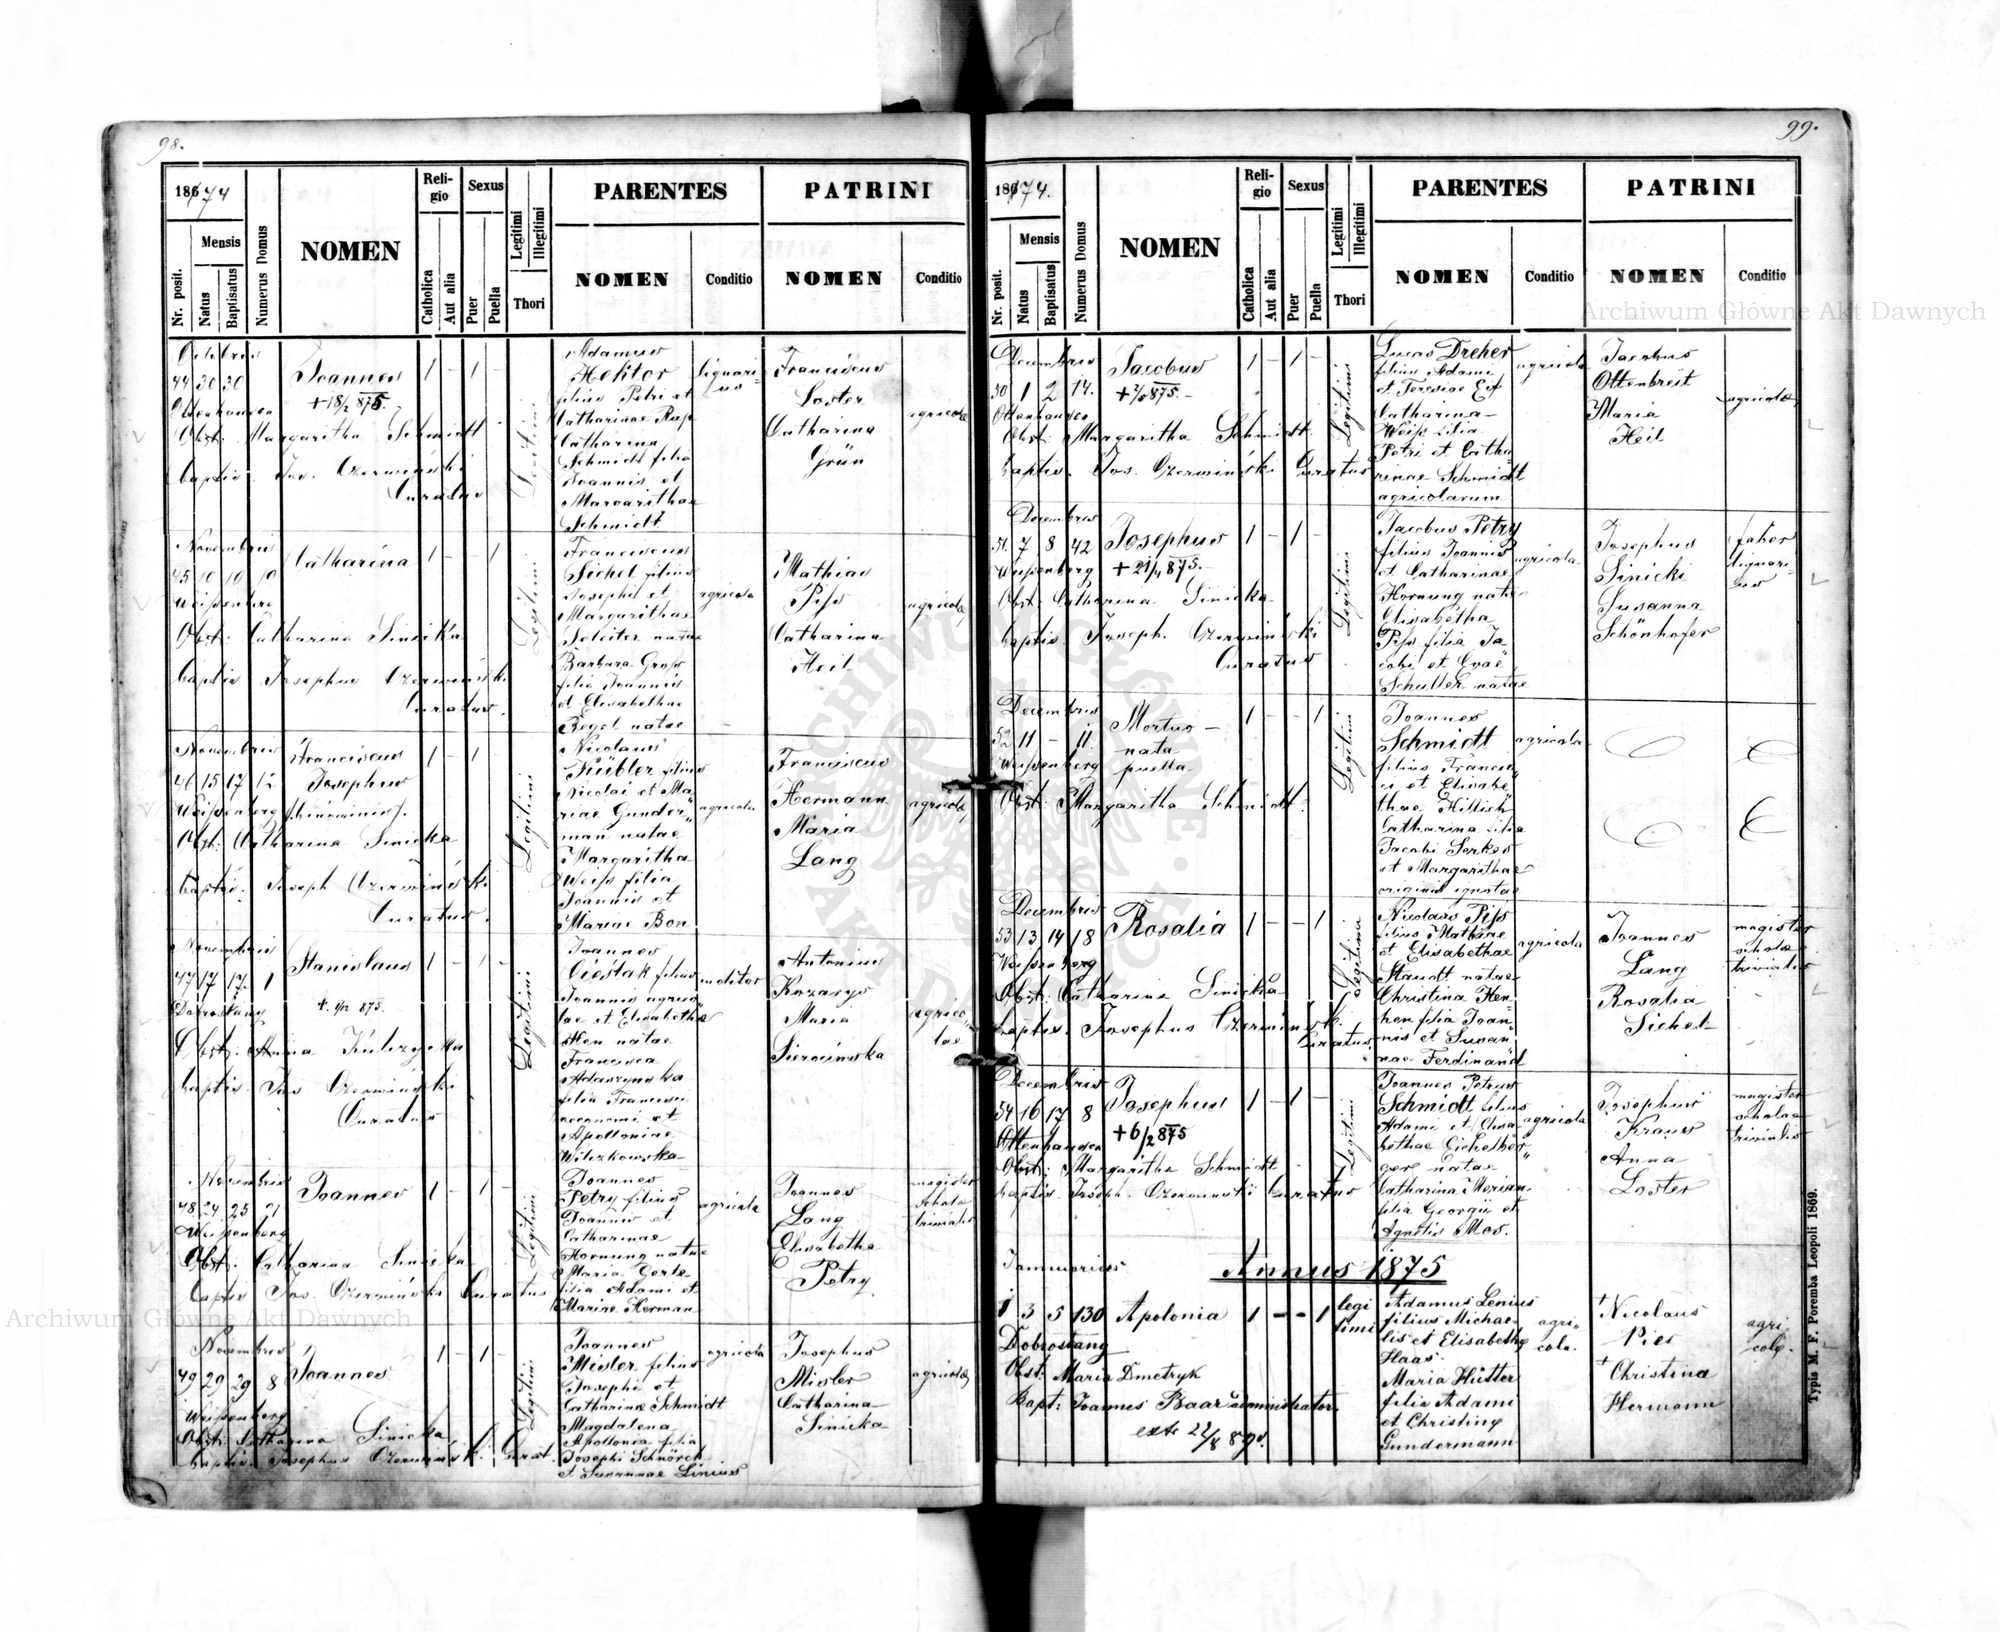 98.
1874
Reli-
gio
Sexus
Legitimi
Illegitimi
PARENTES
PATRINI
Nr. posit.
Mensis
Natus
Baptisatus
Numerus Domus
NOMEN
Catholica
Aut alia
Puer
Puella
Thori
NOMEN
Conditio
NOMEN
Conditio
Octobris
44 30 30
Joannes
+ 18/2 875.
1 - 1 -
Legitimi
Adamus
Hektor
filius Petri et
Catharinae Rup
Catharina
Schmidt filia
Joannis et
Margarithae
Schmidt
lignari-
us
Franciscus
Loster
Catharina
Grün
agricolae
Ottenhausen
Obst: Margaritha Schmidt
baptis. Jos. Czerwiński
Curatus
Novembris
45 10 10 10
Weissenberg
Catharina
1 - - 1
Legitimi
Franciscus
Sichel filius
Josephi et
Margarithae
Seleiter natae
Barbara Gross
filia Joannis
et Elisabethae
Regel natae
agricola
Mathias
Piss
Catharina
Heil
agricolae
Obst: Catharina Sinicka
baptis Josephus Czerwiński
Curatus.
Novembris
46 15 17 12
Weissenberg
Franciscus
Josephus
/binominis/.
1 - 1 -
Legitimi
Nicolaus
Kübler filius
Nicolai et Ma-
riae Gunder-
man natae
Margaritha
Weiss filia
Joannis et
Mariae Bon
agricola
Franciscus
Hermann
Maria
Lang
agricolae
Obst: Catharina Sinicka
baptis. Joseph Czerwiński
Curatus.
Novembris
47 17 17. 1
Dobrostany
Stanislaus
1 - 1 -
Legitimi
Joannes
Cieślak filius
Joannis agrico-
lae et Elisabethae
Hen natae
Francisca
Adaszynska
filia Francisci
oeconomi et
Apolloniae
Wilczkowska
molitor
Antonius
Kozarys
Maria
Sierocińska
agrico-
lae
Obst: Anna Kulczycka
baptis. Jos Czerwiński
Curatus
Novembris
48. 24. 25 21
Weissenberg
Joannes
1 - 1 -
Legitimi
Joannes
Petry filius
Joannis et
Catharinae
Hornung natae
Maria Gerle
filia Adami et
Mariae Herman
agricola
Joannes
Lang
Elisabetha
Petry
magister
scholae
trivialis
Obst: Catharina Sinicka
baptis Jos. Czerwiński Curatus
Novembris
49 29 29 8
Weissenberg
Joannes
1 - 1 -
Legitimi
Joannes
Misler filius
Josephi et
Catharinae Schmidt
Magdalena
Apollonia filia
Josephi Schnörch
et Susannae Linius
agricola
Josephus
Misler
Catharina
Sinicka
agricolae
Obst: Catharina Sinicka
baptis. Josephus Czerwiński Curat.
99.
1874.
Reli-
gio
Sexus
Legitimi
Illegitimi
PARENTES
PATRINI
Nr. posit.
Mensis
Natus
Baptisatus
Numerus Domus
NOMEN
Catholica
Aut alia
Puer
Puella
Thori
NOMEN
Conditio
NOMEN
Conditio
Decembris
50 1 2 14.
Ottenhausen
Jacobus
1 - 1 -
Legitimi
Lucas Dreher
filius Adami
et Teresiae
Catharina
Weiss filia
Petri et Catha-
rinae Schmidt
agricolarum
agricola
Jacobus
Ottenbreit
Maria
Heil
agricolae
Obst: Margaritha Schmidt.
baptis. Jos. Czerwiński Curatus
Decembris
51. 7 8 42
Weissenberg
Josephus
+ 21/4 875.
1 - 1 -
Legitimi
Jacobus Petry
filius Joannis
et Catharinae
Hornung natae
Elisabetha
Piss filia Ja-
cobi et Evae
Schuller natae
agricola
Josephus
Sinicki
Susanna
Schönhofer
faber
lignari-
us
Obst: Catharina Sinicka
baptis. Joseph. Czerwiński
Curatus
Decembris
52 11 - 11.
Weissenberg
Mortuo-
nata
puella
1 - - 1
Legitimi
Joannes
Schmidt
filius Francis-
ci et Elisabe-
thae Hillich
Catharina filia
Jacobi Serkes
et Margarithae
originis ignotae
agricola
Obst: Margaritha Schmidt.
Decembris
53 13 14 18
Weissenberg
Rosalia
1 - - 1
Legitimi
Nicolaus Piss
filius Mathiae
et Elisabethae
Staudt natae
Christina Hen-
hen filia Joan-
nis et Susan-
nae Ferdinand
agricola
Joannes
Lang
Rosalia
Sichel
magister
scholae
trivialis
Obst: Catharina Sinicka
baptis. Josephus Czerwiński.
Curatus.
Decembris
54 16 17 8
Ottenhausen
Josephus
+ 6/2 875
1 - 1 -
Legitimi
Joannes Petrus
Schmidt filius
Adami et Elisa-
bethae Eichelber-
ger natae
Catharina Merian
filia Georgii et
Agnetis Mos.
agricola
Josephus
Kraus
Anna
Loster
magister
scholae
trivialis
Obst: Margaritha Schmidt
baptis. Joseph. Czerwinski Curatus
Januarius
Annus 1875
1 3 5 130 Apolonia 1 - - 1
legi
timi
Adamus Lenius
filius Michae-
lis et Elisabethę
Haas.
Maria Hütter
filia Adami
et Christinę
Gundermann
agri-
cola.
+ Nicolaus
Pies
+ Christina
Hermann
agri-
colę.
Dobrostany
Obst: Maria Dmetryk
Bapt: Joannes Baar administrator.
Typis M. F. Poremba Leopoli 1869.
Archiwum Główne Akt Dawnych
Archiwum Główne Akt Dawnych
ARCHIWUM GŁÓWNE AKT DAWNYCH